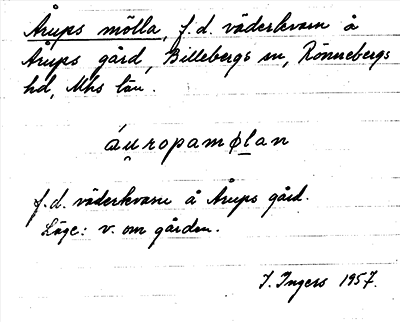 Årups mölla, f.d. väderkvarn å
Årups gård, Billebergs sn, Rönnebergs
hd, Mhs län.
áu̯ropamølan
f.d. väderkvarn å Årups gård.
Läge: v. om gården.
I. Ingers 1957.